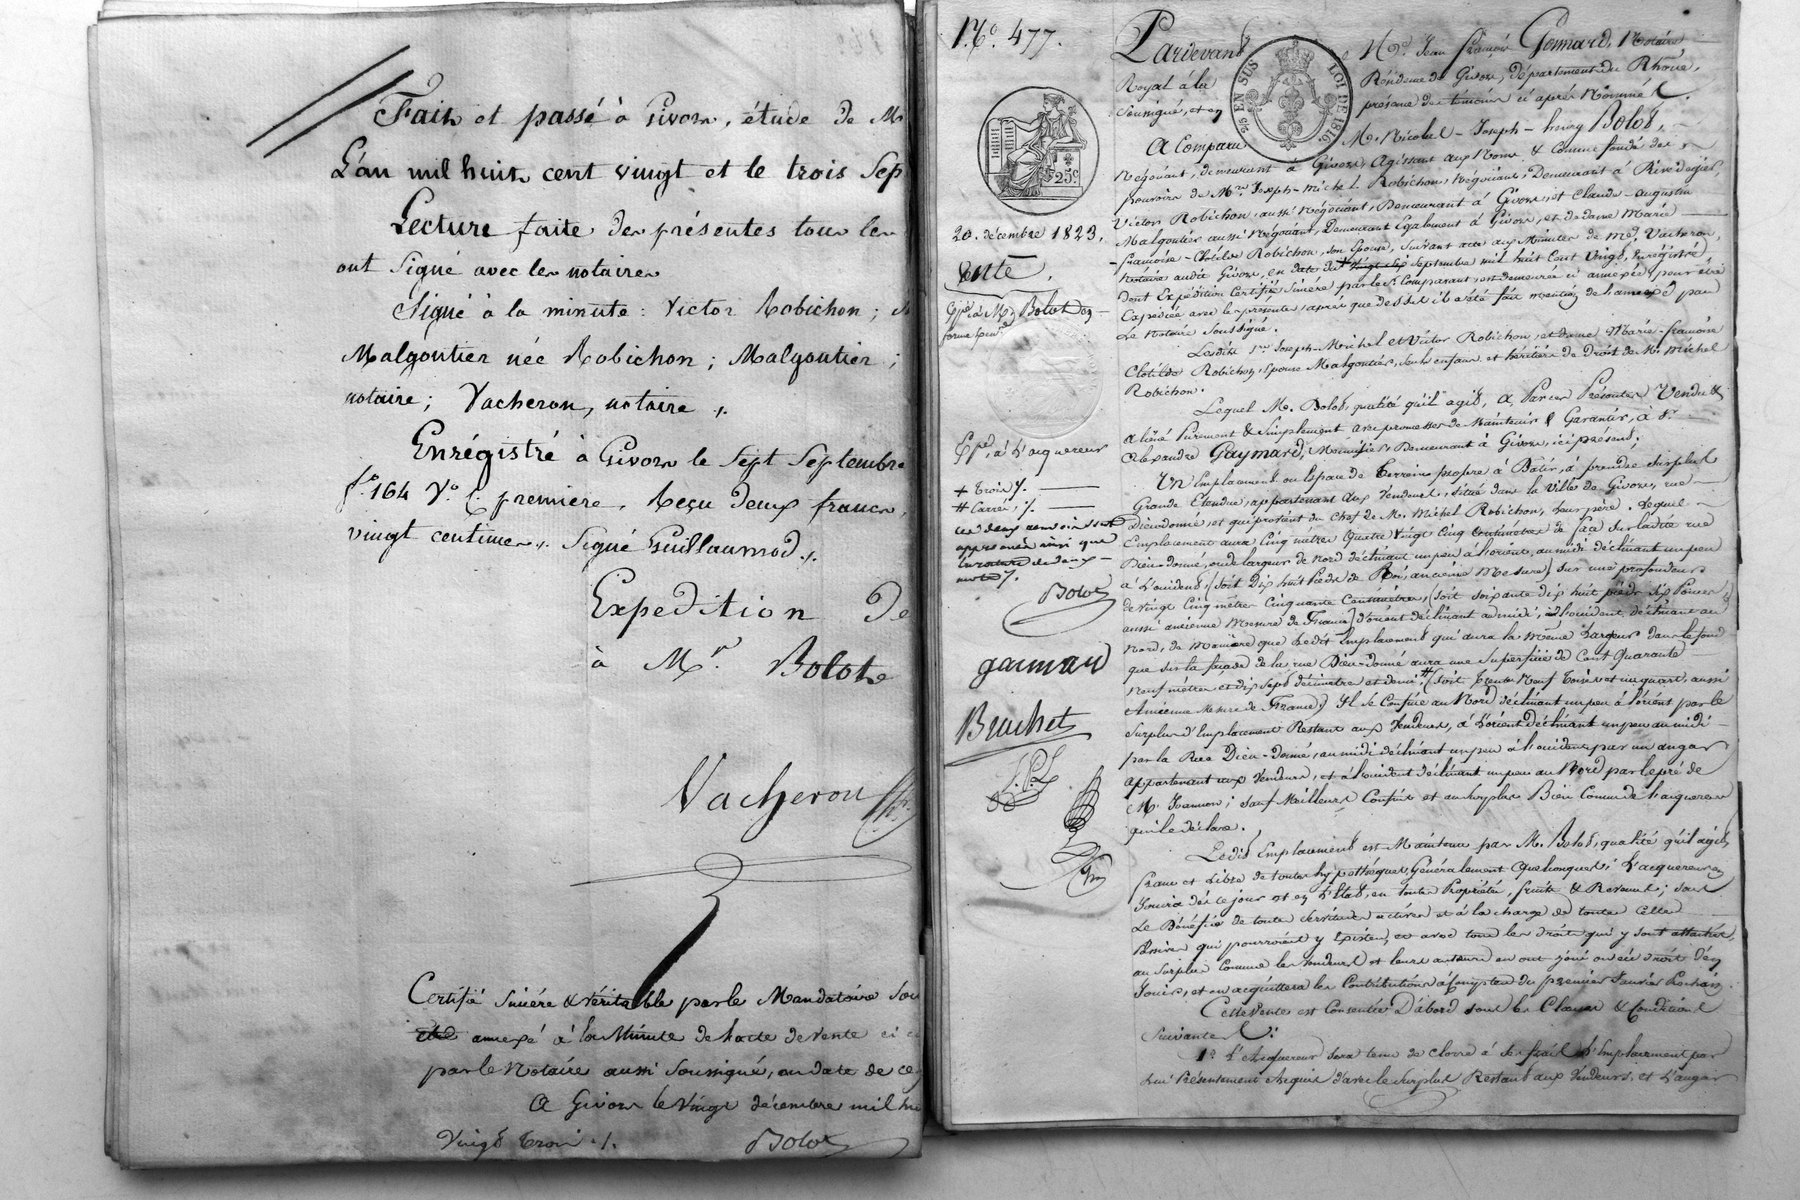 Fait et passé à Givors, étude de M
L'an mil huit cent vingt et le trois Sep
Lecture faite des présentes tous les
ont Signé avec les notaires
Signé à la minute : Victor Robichon ;
Malgontier née Robichon ; Malgontier ;
notaire ; Vacheron, notaire ./.
Enrégistré à Givors le Sept Septembre
f.° 164 V.° C. première, Reçu deux francs,
vingt centimes ./. Signé Guillaumod ./.
Expedition De
à M.r Bolot
Vacheron
Certifié Sincére & véritable par le Mandataire Sou
annexé à la Minute de l'acte de vente ci
par le Notaire aussi Soussigné, en date de ce
A Givors le vingt décembre mil hu
vingt trois ./. Bolot
N.° 477.
25c
25 EN SUS LOI DE 1816
20. décembre 1823.
Vente.
Exp.é à M. Bolot en
forme
Exp.é à L'aquereur
+ trois /.
# Carrés /.
les deux renvois sont
approuvés ainsi que
la rature de deux
mots /.
Bolot
gaimard
Bruchet
Pardevant M.e Jean François Gonnard, Notaire
Royal à la Résidence de Givors, département du Rhône,
Soussigné, et en présence des témoins ci après Nommés.
A Comparu M. Nicolas-Joseph-henry Bolot,
Négociant, demeurant à Givors, Agissant aux Noms & Comme fondé de
pouvoirs de M.rs Joseph-Michel Robichon, Négociant, Demeurant à Rivedegier,
Victor Robichon, aussi Négociant, Demeurant à Givors, et Claude-augustin
Malgontier aussi Négociant, Demeurant Egalement à Givors, et de dame Marie
françoise-Clotilde Robichon, son Epouse, Suivant acte aux Minutes de M.e Vacheron,
Notaire audit Givors, en date du + vingt six Septembre mil huit Cent Vingt, Enrégistré
dont Expédition Certifiée Sincère par le S.r Comparant, est demeurée ci annexée pour être
Expédiée avec les présentes, après que dessus il a été fait mention de l'annexe par
Le Notaire Soussigné.
Lesdits S.rs Joseph-Michel et Victor Robichon, et dame Marie-françoise
Clotilde Robichon, Epouse Malgontier, Seuls enfans et héritiers de Droit de M. Michel
Robichon.
Lequel M. Bolot, qualité qu'il agit, A Par ces Présentes Vendu &
aliéné Purement & Simplement avec promesse de Maintenir & Garantir, à S.r
Alexandre Gaymard, Menuisier Demeurant à Givors, ici présent,
Un Emplacement ou Espace de terrein propre à Bâtir, à prendre Sur plus
Grande Etendue, appartenant aux Vendeurs, Situé dans la Ville de Givors, rue
Dieudonné, et qui provient du Chef de M. Michel Robichon, leur père. Lequel
Emplacement aura Cinq mètres Quatre Vingt Cinq Centimètres de face Sur ladite rue
Dieu-donné, ou de largeur de Nord déclinant un peu à l'orient, au midi déclinant un peu
à L'occident, (soit Dix huit Pieds de Roi, ancienne Mesure) Sur une profondeur
de Vingt Cinq mètres Cinquante Centimètres, (soit soixante dix huit pieds Six Pouces
aussi ancienne Mesure de France) d'orient déclinant au midi, à l'occident déclinant au
Nord, de Manière que Ledit Emplacement qui aura la même Largeur dans le fond
que sur la façade de la rue Dieu-donné aura une Superficie de Cent Quarante
Neuf mètres et dix Sept décimètres et demi # (soit trente Neuf toises et un quart, aussi
Ancienne Mesure de France.) Il Se Confine au Nord déclinant un peu à l'orient par le
Surplus d'Emplacement Restant aux Vendeurs, à L'orient déclinant un peu au midi
par la Rue Dieu-donné, au midi déclinant un peu à l'occident, par un angar
appartenant aux Vendeurs, et à l'occident déclinant un peu au Nord par le pré de
M. Joannon ; sauf Meilleurs Confins et au Surplus Bien Connu de L'aquereur
qui le déclare.
Ledit Emplacement est Maintenu par M. Bolot, qualité qu'il agit,
franc et Libre de toutes hypothèques Généralement Quelconques ; L'acquereur en
Jouira dès ce jour et en L'Etat, en toute Propriété, fruits & Revenus ; sous
Le Bénéfice de toute Servitude actives et à la charge de toutes Celles
Passives qui pourroient y Exister, et avec tous les droits qui y sont attachés,
au Surplus Comme les Vendeurs et leurs auteurs en ont joui ou eu droit d'en
Jouir, et en acquittera les Contributions à Compter du premier Janvier Prochain.
Cette Vente est Consentie D'abord sous les Clauses & Conditions
Suivantes :
1.° L'Acquereur sera tenu de Clorre à Ses frais L'Emplacement par
Lui Présentement Acquis d'avec le Surplus Restant aux Vendeurs, et L'angar